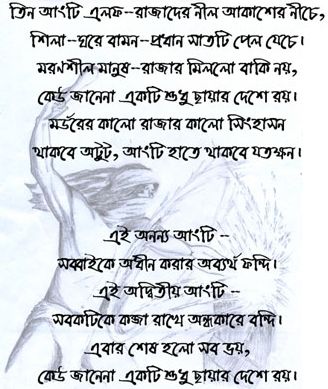 তিন আংটি এলফ--রাজাদের নীল আকাশের নীচে,
শিলা--ঘরে বামন--প্রধান সাতটি পেল যেচে।
মরণশীল মানুষ--রাজার মিললো বাকি নয়,
কেউ জানেনা একটি শুধু ছায়ার দেশে রয়।
মর্ডরের কালো রাজার কালো সিংহাসন
থাকবে অটুট, আংটি হাতে থাকবে যতক্ষন।
এই অনন্য আংটি --
সব্বাইকে অধীন করার অব্যর্থ ফন্দি।
এই অদ্বিতীয় আংটি --
সবকটিকে কব্জা রাখে অন্ধকারে বন্দি।
এবার শেষ হলো সব ভয়,
কেউ জানেনা একটি শুধু ছায়ার দেশে রয়।